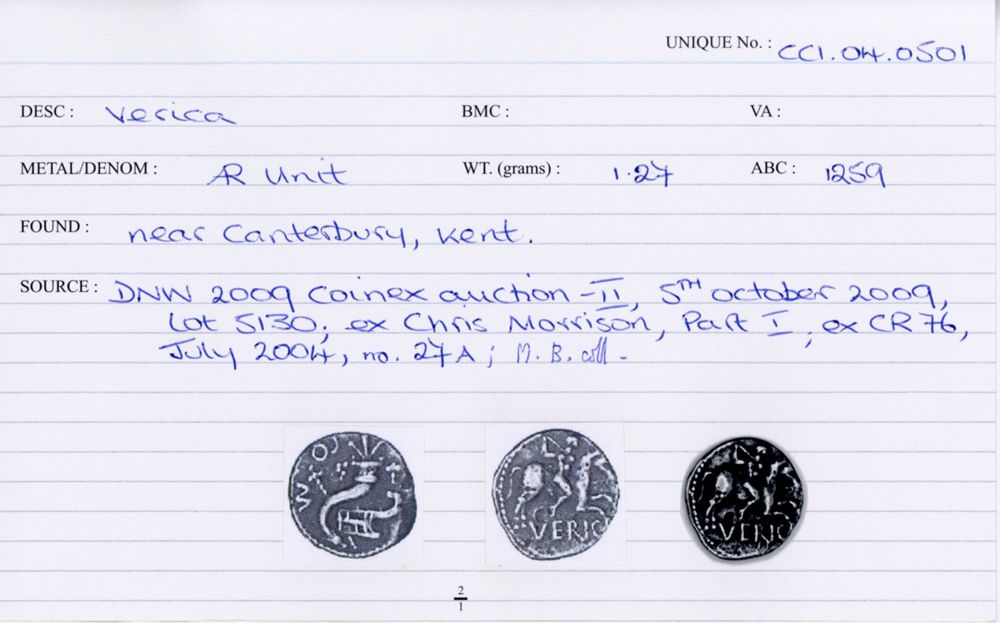 UNIQUE No. : CCI.04.0501
DESC : Verica BMC : VA :
METAL/DENOM : AR Unit WT. (grams) : 1.27 ABC : 1259
FOUND : near Canterbury, Kent.
SOURCE : DNW 2009 Coinex auction - II, 5TH October 2009,
Lot 5130; ex Chris Morrison, Part I; ex CR76,
July 2004, no. 27A; M. B. coll.
VERIC VERIC
2
1